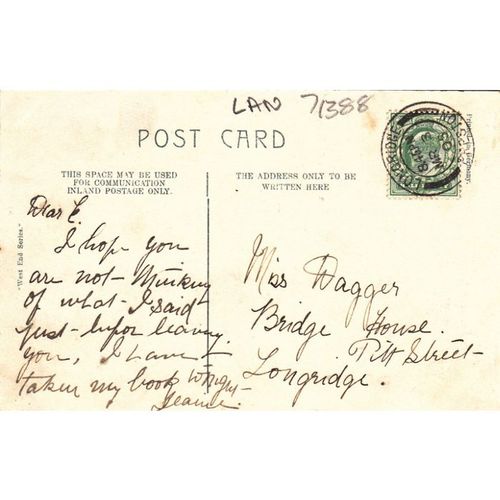 LAN 71388
POST CARD
THIS SPACE MAY BE USED
FOR COMMUNICATION
INLAND POSTAGE ONLY.
THE ADDRESS ONLY TO BE
WRITTEN HERE
"West End Series."
Dear E.
I hope you
are not thinking
of what I said
just befor leaving
you, I have
taken my book
Miss Dagger
Bridge House.
Pitt Street
Longridge.